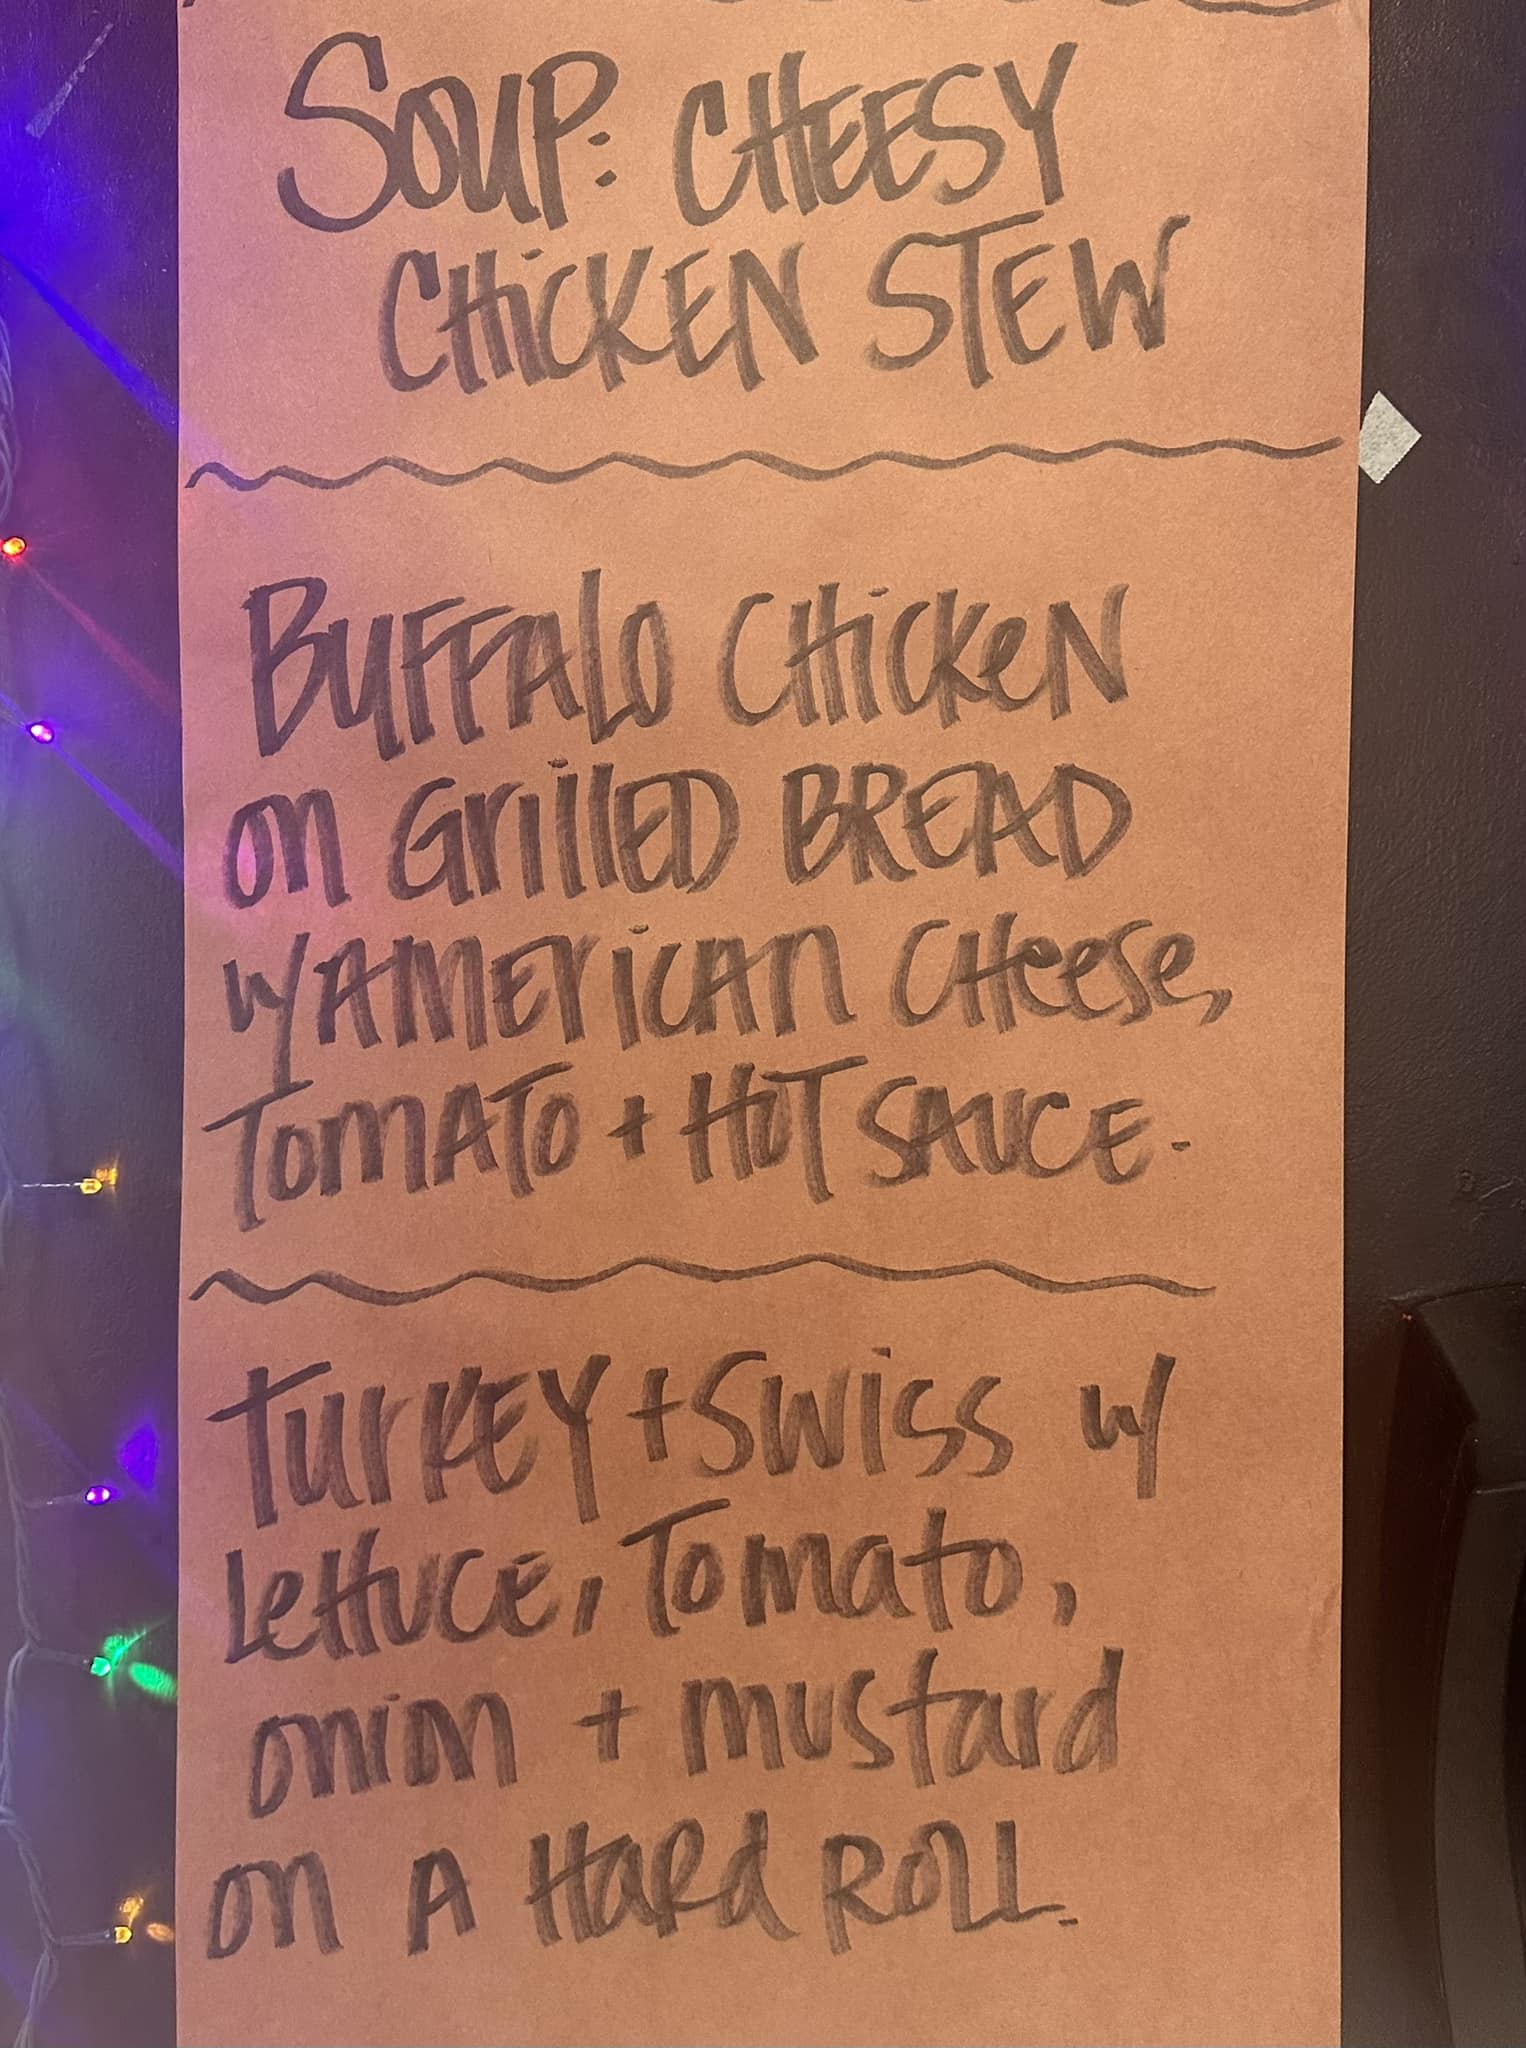 SOUP: CHEESY
CHiCKEN STEW
BUFFALO CHicKeN
on GrillED BREAD
w/ AMERicAn CHeese,
TOmATO + HOT SAUCE.
TurKEY + SWiss w/
LettUCE, Tomato,
onion + mustard
on A HaRd ROLL.